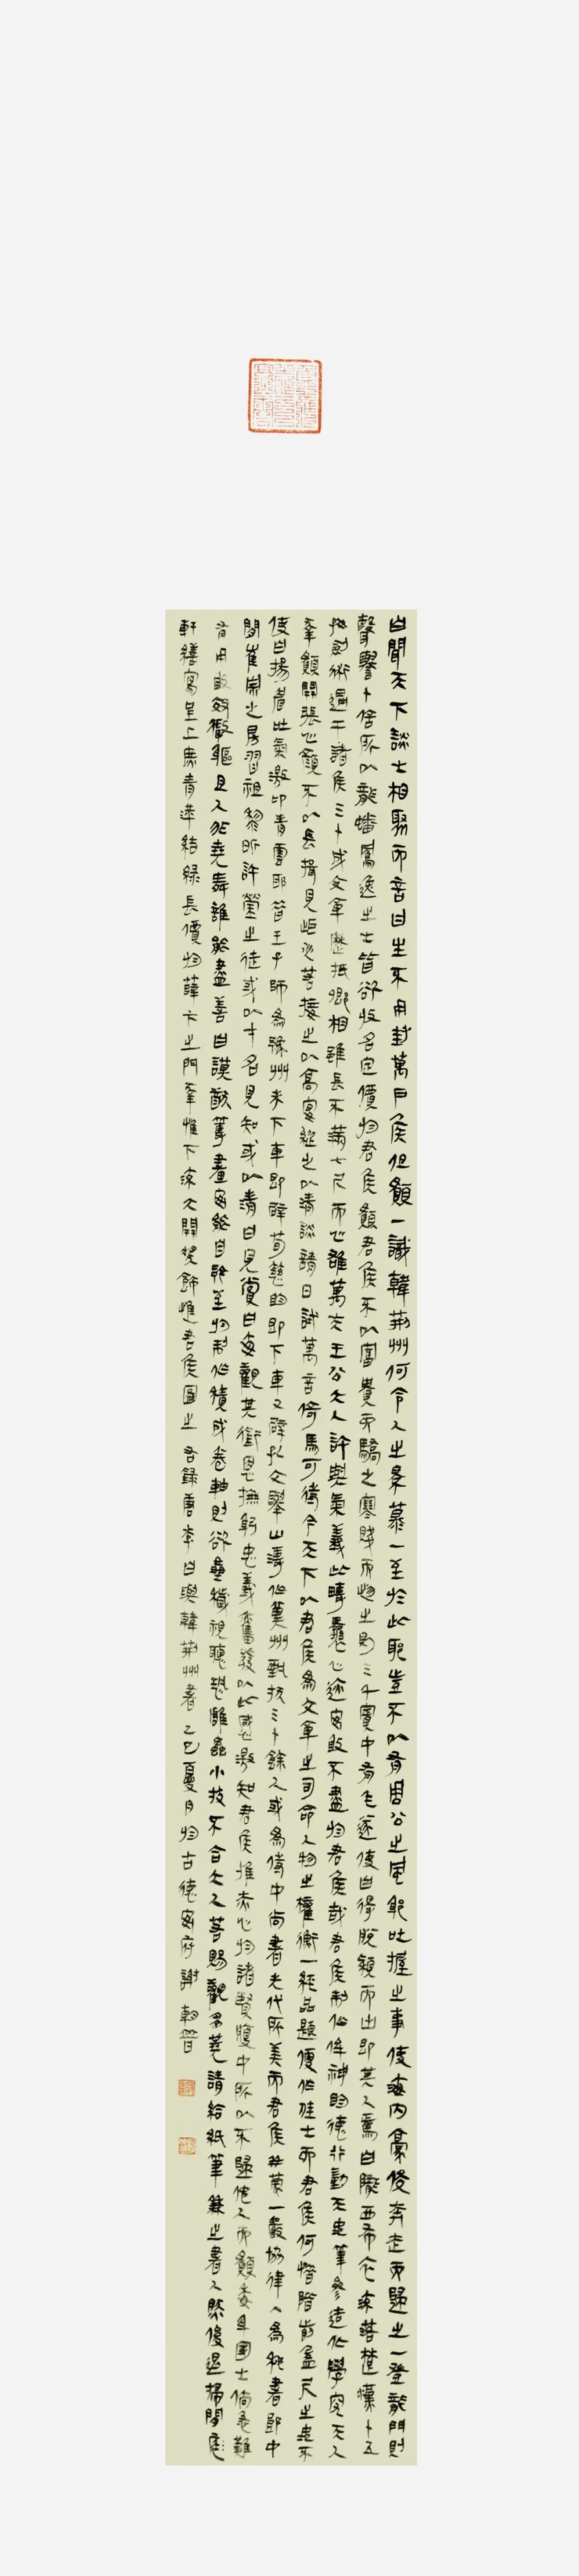 白聞天下談士相聚而言曰生不用封萬戶侯但願一識韓荊州何令人之景慕一至於此耶豈不以有周公之風躬吐握之事使海內豪俊奔走而歸之一登龍門則
聲譽十倍所以龍蟠鳳逸之士皆欲收名定價於君侯願君侯不以富貴而驕之寒賤而忽之則三千賓中有毛遂使白得脫穎而出即其人焉白隴西布衣流落楚漢十五
好劍術遍干諸侯三十成文章歷抵卿相雖長不滿七尺而心雄萬夫王公大人許與氣義此疇曩心迹安敢不盡於君侯哉君侯制作侔神明德行動天地筆參造化學究天人
幸願開張心顏不以長揖見拒必若接之以高宴縱之以清談請日試萬言倚馬可待今天下以君侯為文章之司命人物之權衡一經品題便作佳士而君侯何惜階前盈尺之地不
使白揚眉吐氣激昂青雲耶昔王子師為豫州未下車即辟荀慈明即下車又辟孔文舉山濤作冀州甄拔三十餘人或為侍中尚書先代所美而君侯亦薦一嚴協律入為秘書郎中
間崔宗之房習祖黎昕許瑩之徒或以才名見知或以清白見賞白每觀其銜恩撫躬忠義奮發以此感激知君侯推赤心於諸賢腹中所以不歸他人而願委身國士倘急難
有用敢效微軀且人非堯舜誰能盡善白謨猷籌畫安能自矜至於制作積成卷軸則欲塵穢視聽恐雕蟲小技不合大人若賜觀芻蕘請給紙筆兼之書人然後退掃閒
軒繕寫呈上庶青萍結綠長價於薛卞之門幸惟下流大開獎飾惟君侯圖之 右錄唐李白與韓荊州書 乙巳夏月於古德安府 謝朝晉